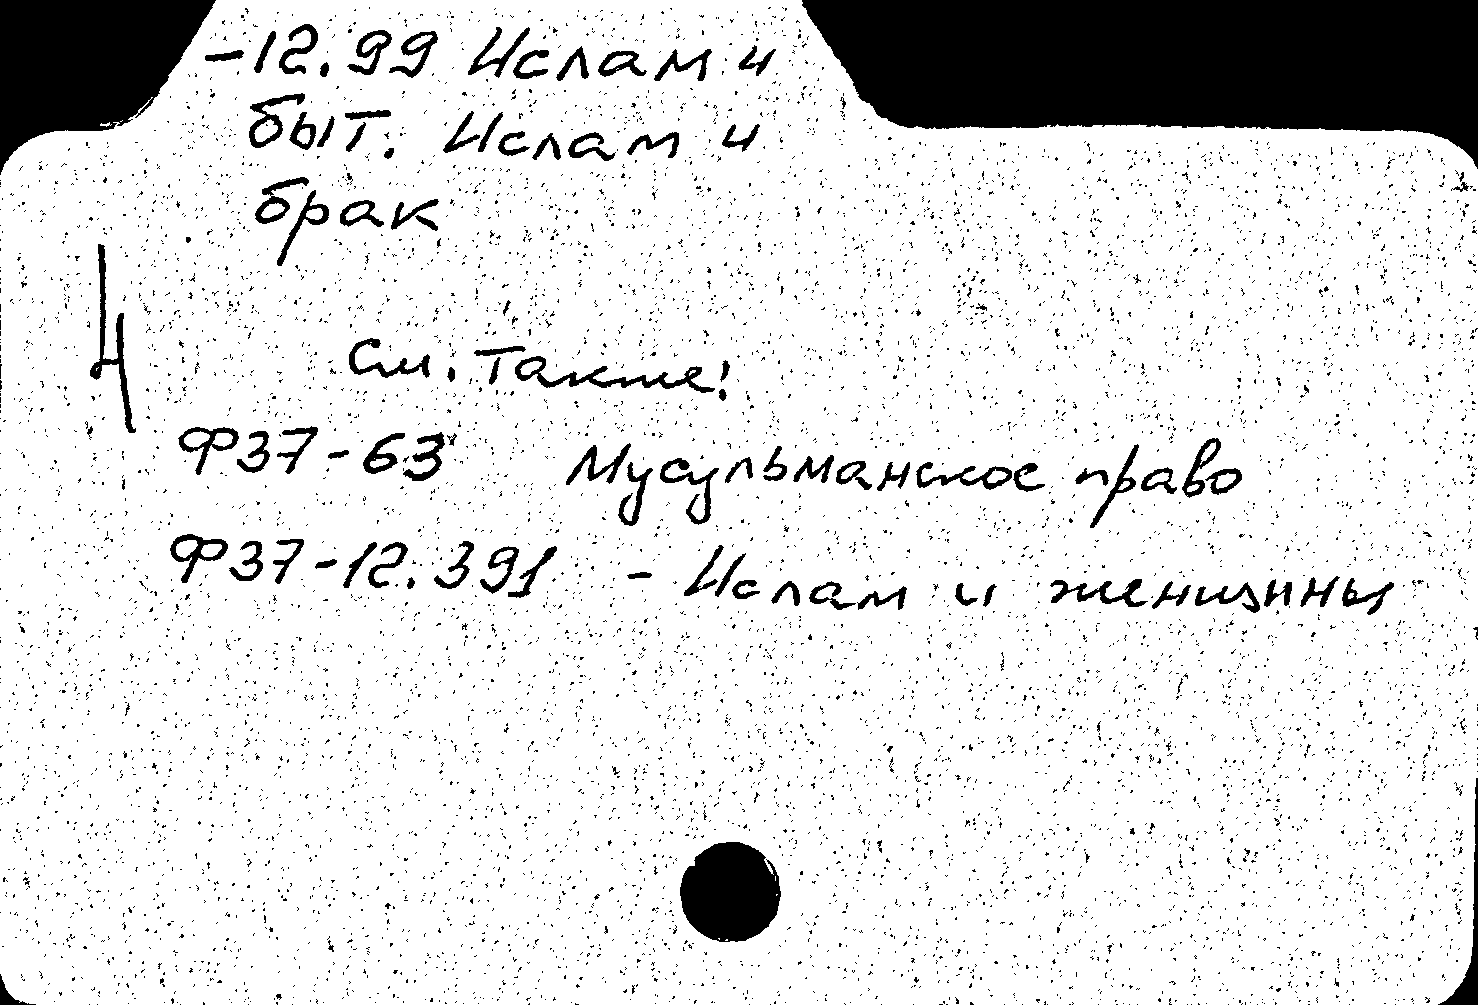 -12.99 Ислам и
быт. Ислам и
брак
4
См. также!
Ф37-63 Мусульманское право
Ф37-12.391 - Ислам и женщины